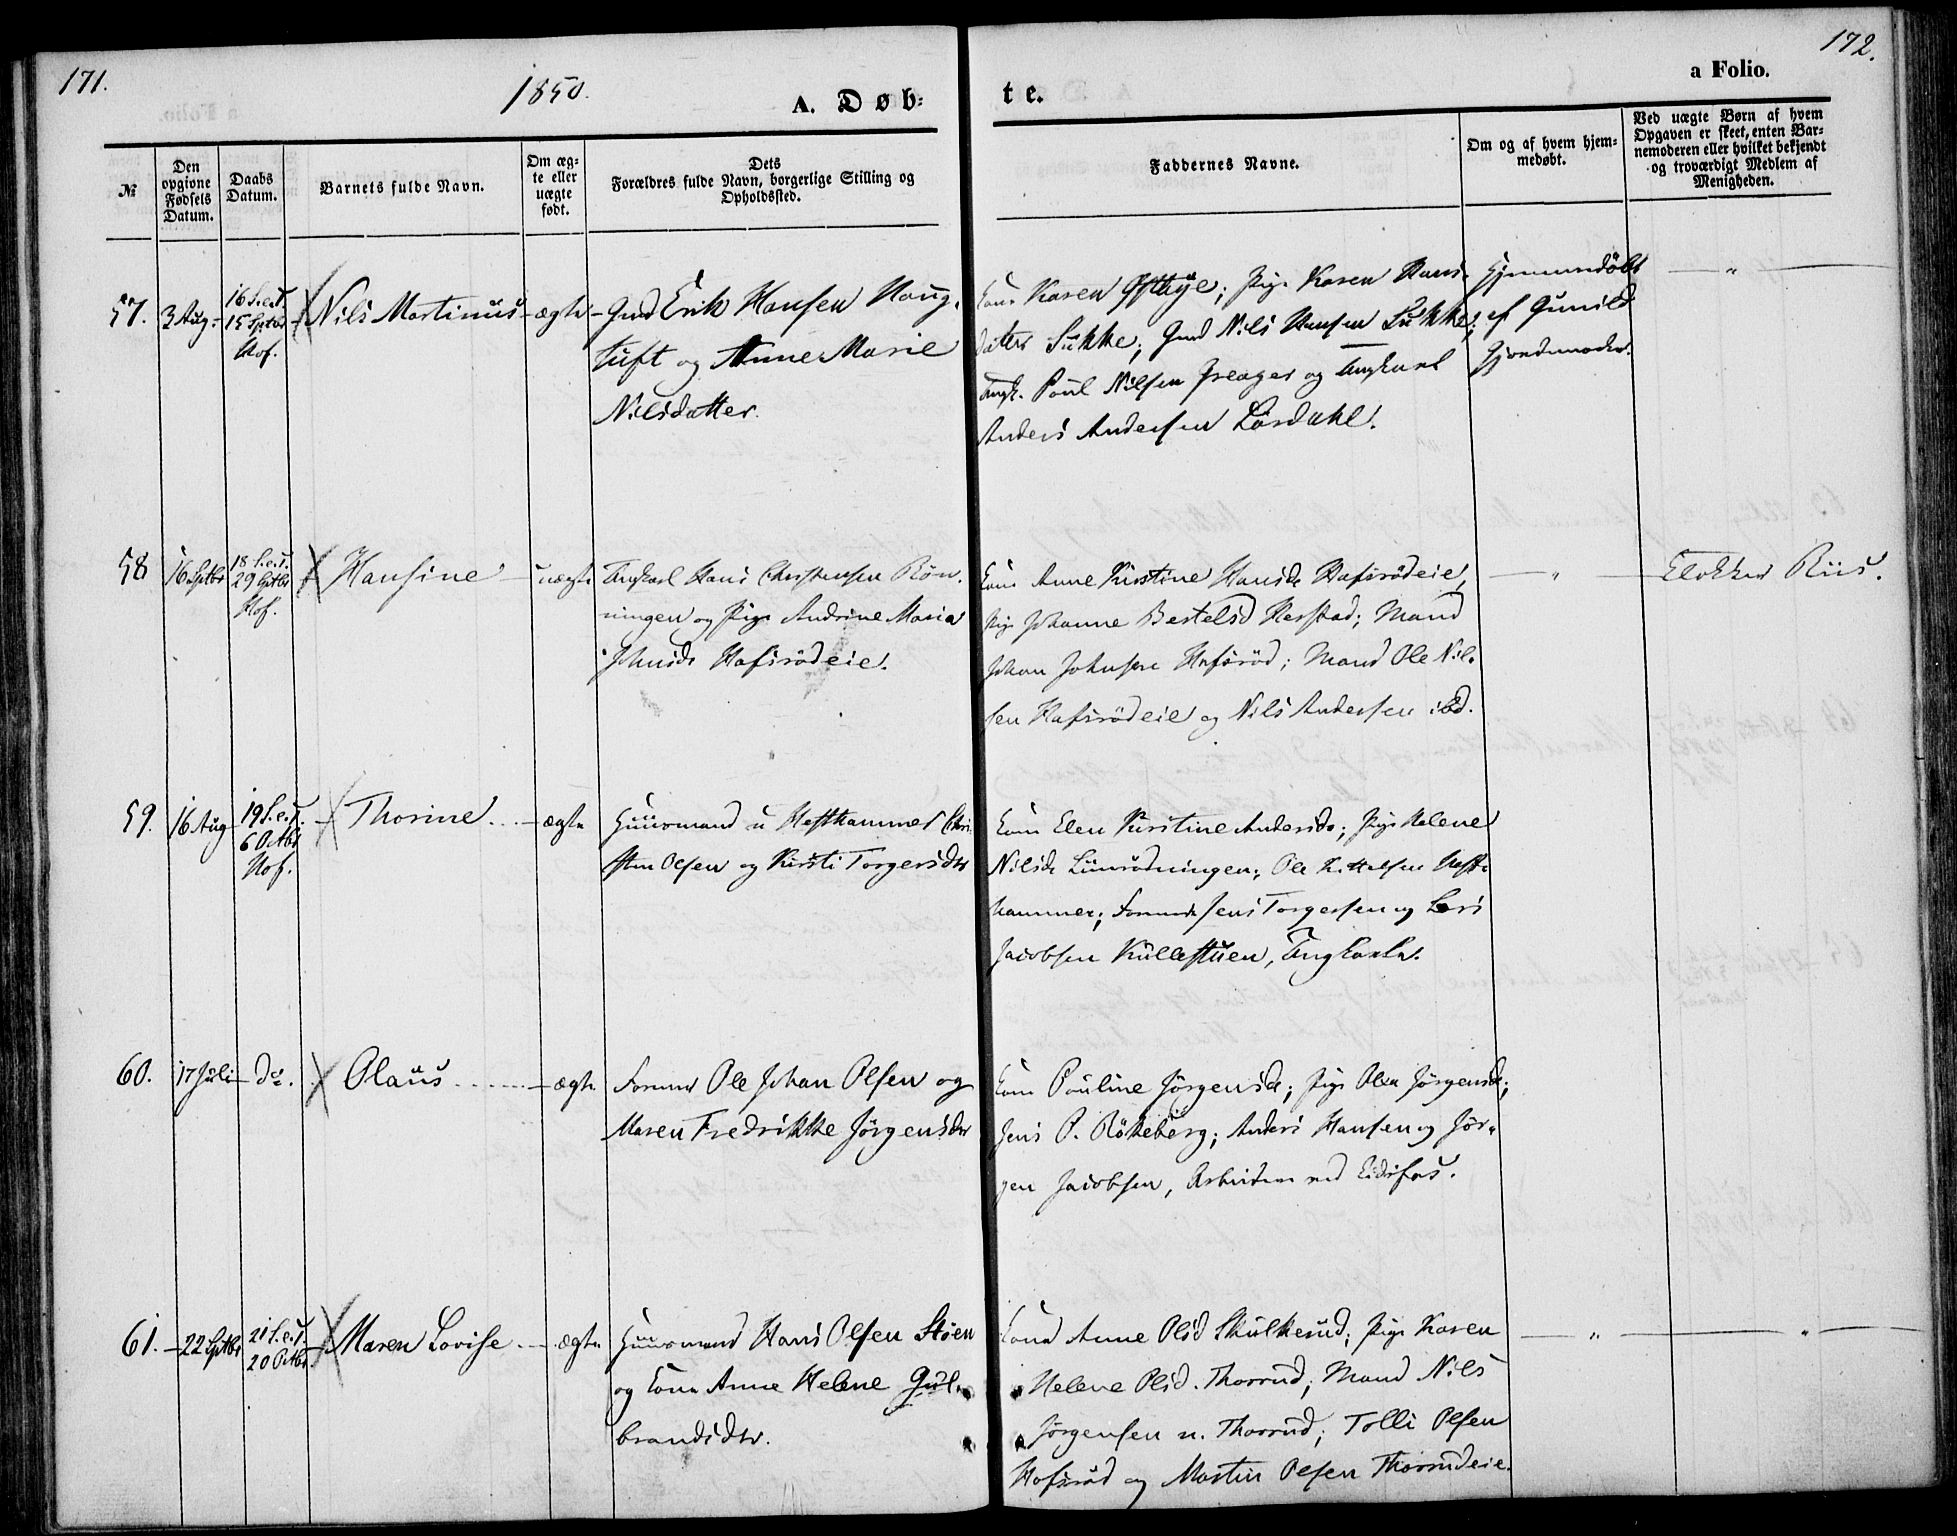 171.
1850.
A. Døb=
te.
172.
a Folio.
№
Den opgivne Fødsels Datum.
Daabs Datum.
Barnets fulde Navn.
Om ægte eller uægte født.
Dets Forældres fulde Navn, borgerlige Stilling og Opholdssted.
Faddernes Navne.
Om og af hvem hjemmedøbt.
Ved uægte Børn af hvem Opgaven er skeet, enten Barnemoderen eller hvilket bekjendt og troværdigt Medlem af Menigheden.
57. 3 Aug. 16 S.e.T. 15 Sptbr Hof. Nils Martinus ægte
Gmd Erik Hansen Houg-
tuft og Anne Marie
Nilsdatter.
Kone Karen Østbye; Pige Karen Hans-
datter Sukke; Gmd Nils Hansen Sukke;
Ungk. Poul Nilsen Præger og Ungkarl
Anders Andersen Løsdahl.
Hjemmedøbt
af Gunild
Gjordemoder.
58 16 Sptbr 18 S.e.T. 29 Sptbr Hof. Hansine uægte
Ungkarl Hans Christensen Røn-
ningen og Pige Andrine Maria
Johnsdr Hafsrødeie.
Kone Anne Kirstine Hansdr Hafsrødeie,
Pige Johanne Bertelsd Herstad; Mand
Johan Johnsen Hafsrød; Mand Ole Nil-
sen Hafsrødeie og Nils Andersen ibd.
Klokker Riis.
59. 16 Aug 19 S.e.T. 6 Octbr Hof. Thorine ægte
Huusmand u Hesthammer Chri-
sten Olsen og Kirsti Torgersdtr
Kone Elen Kirstine Andersdr; Pige Helene
Nilsdr Linnrødningen; Ole Kittelsen Hest-
hammer; Formd Jens Torgersen og Lars
Jacobsen Kullestuen, Ungkarle.
60. 17 Juli do. Olaus ægte
Former Ole Johan Olsen og
Maren Fredrikke Jørgensdtr
Kone Pouline Jørgensdr; Pige Olea Jørgensdr;
Jens P. Røkeberg; Anders Hansen og Jør-
gen Jacobsen, Arbeidere ved Eidsfos.
61. 22 Sptbr 21 S.e.T. 20 Octbr Maren Lovise ægte
Huusmand Hans Olsen Støen
og Kone Anne Helene Gul-
brandsdtr.
Kone Anne Olsd Skulkerud; Pige Karen
Helene Olsd. Thorrud; Mand Nils
Jørgensen u. Thorrud; Tolli Olsen
Hofsrød og Martin Olsen Thorrudeie.